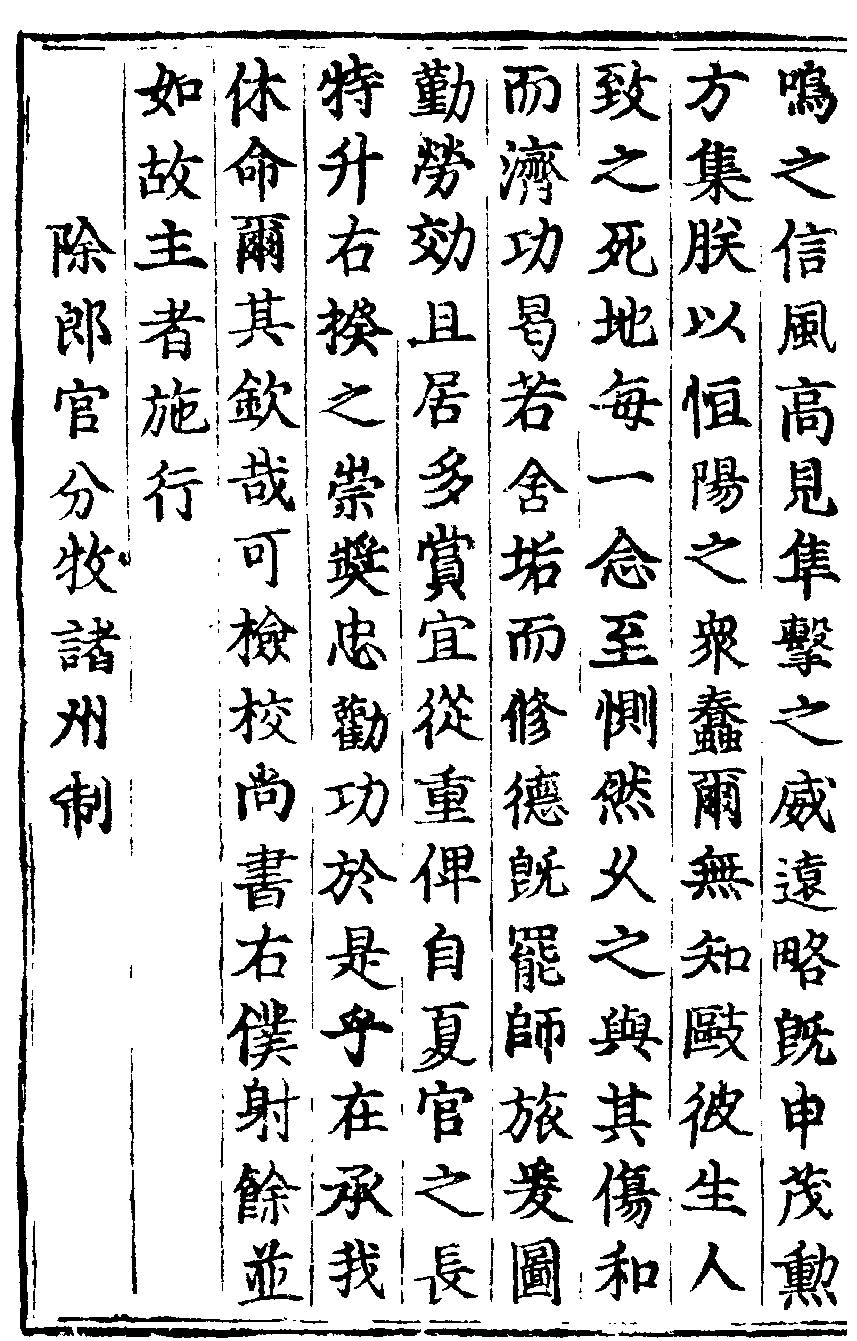 鳴之信風高見隼擊之威遠略旣申茂勳
方集朕以恒陽之衆蠢爾無知毆彼生人
致之死地每一念至惻然久之與其傷和
而濟功曷若舍垢而修德旣罷師旅爰圖
勤勞効且居多賞宜從重俾自夏官之長
特升右揆之崇奬忠勸功於是乎在承我
休命爾其欽哉可檢校尚書右僕射餘並
如故主者施行
除郎官分牧諸州制